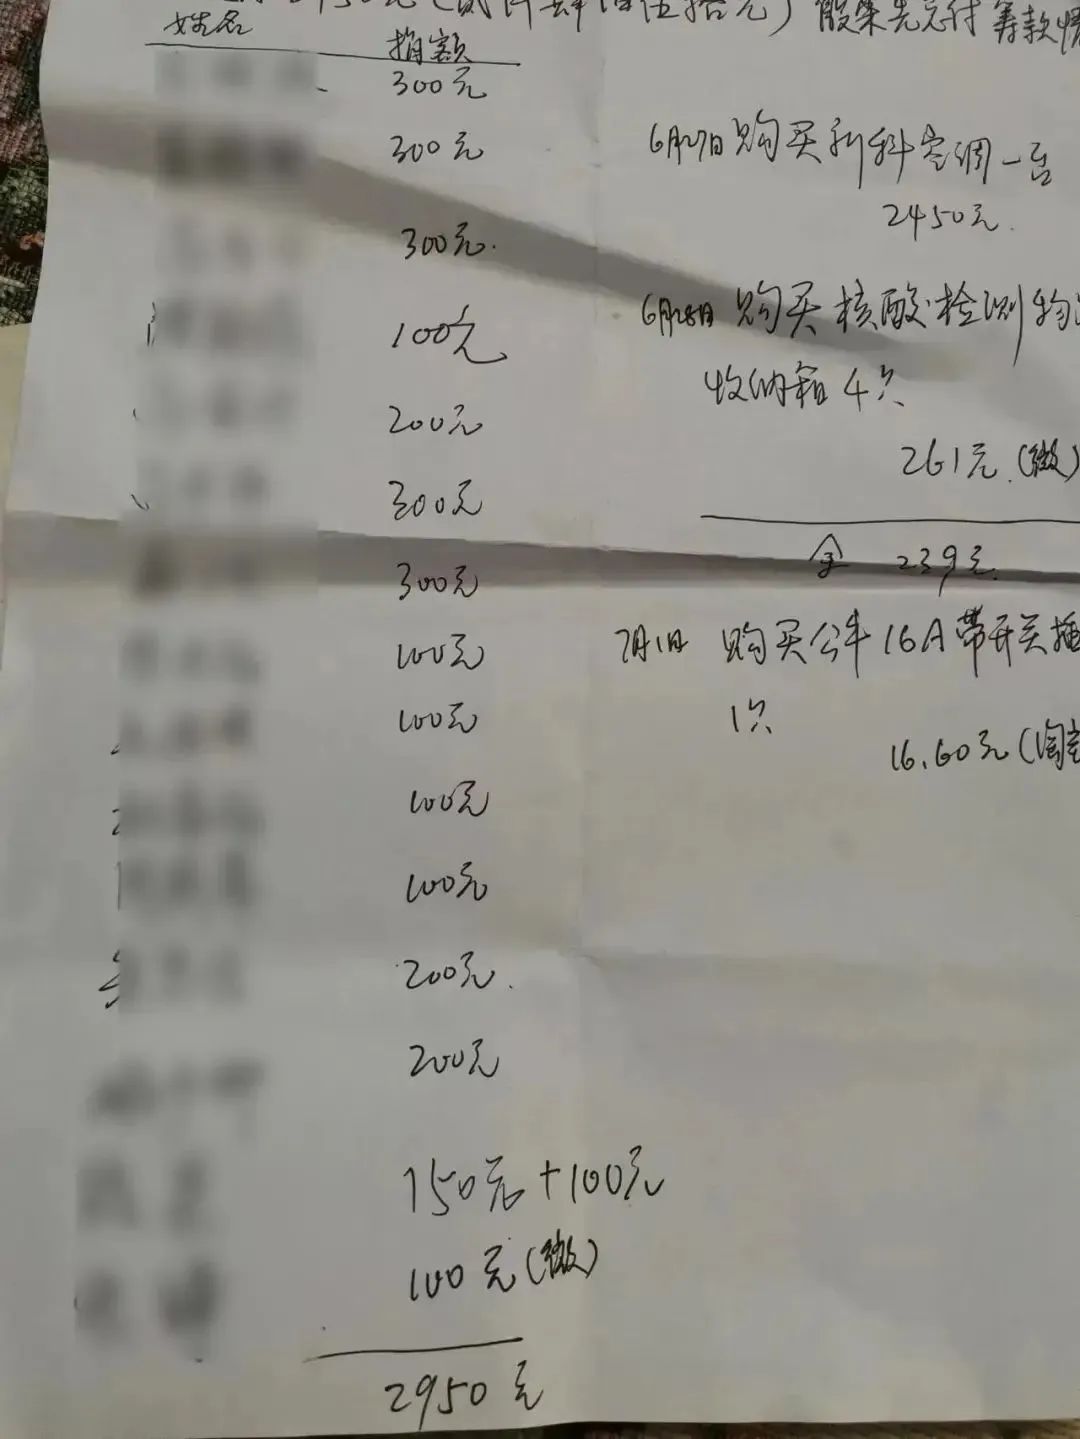 450元(贰仟肆佰伍拾元) 殷荣先总付 筹款情
姓名 捐额
300元
300元
300元.
100元
200元
300元
300元
100元
100元
100元
100元
200元.
200元
150元+100元
100元(微)
2950元
6月27日购买新科空调一台
2450元.
6月28日 购买核酸检测物
收纳箱4只
261元.(微)
余 239元.
7月1日 购买公牛16A带开关插
1只
16.60元(淘宝